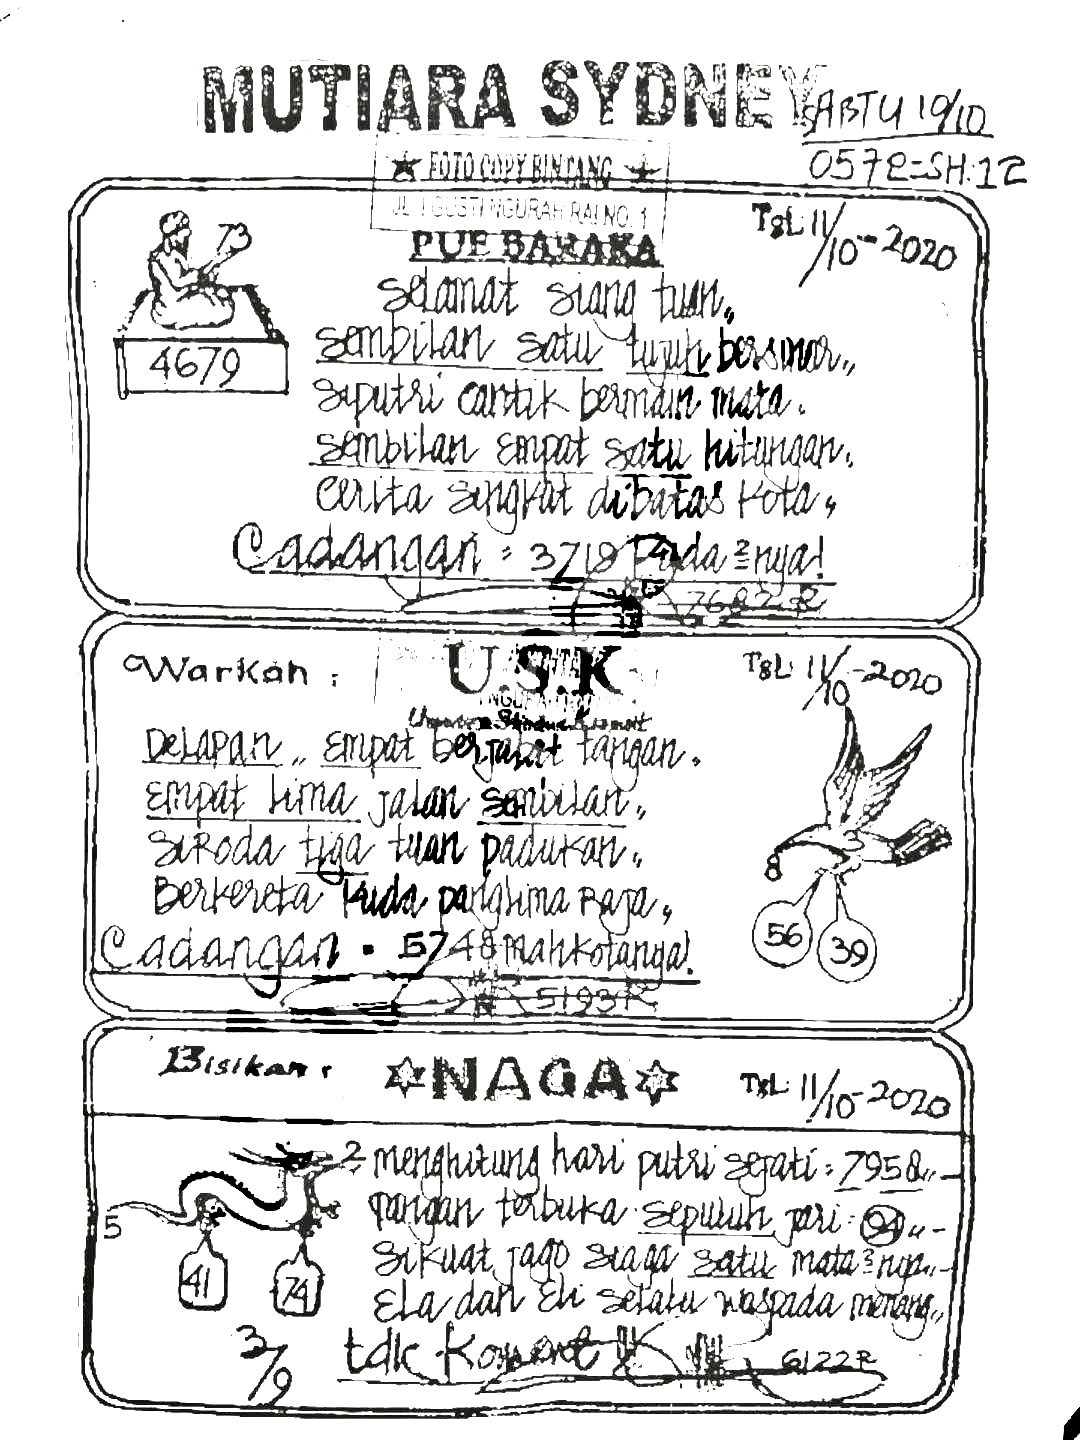 MUTIARA SYDNEY
SABTU 19/10
0572=SH:12
★ FOTO COPY BINTANG ★
JL. I GUSTI NGURAH RAI NO. 1
TgL: 11/10-2020
73
4679
Selamat siang tuan,,
sembilan satu tujuh bersinar,,
siputri cantik bermain mata.
sembilan empat satu hitungan.
Cerita singkat dibatas kota,,
Cadangan = 3719 Pada 2nya!
7682-R
U.S.K
Warkah :
TgL: 11/10-2020
DELAPAN ,, EMPAT berjabat tangan.
EMPAT Lima jalan sembilan,,
siRoda tiga tuan padukan,,
Berkereta kuda panglima Raja,,
Cadangan = 5748 mahkotanya!
56 39
8
5193R
Bisikan :
☆NAGA☆
TgL: 11/10-2020
2
5
41 74
menghitung hari putri sejati = 7958,,-
Tangan terbuka sepuluh jari = 94,,-
sikuat jago siaga satu mata 2nya,,-
ELa dan Eli selalu waspada menang,,
3/9
tdk
6122R